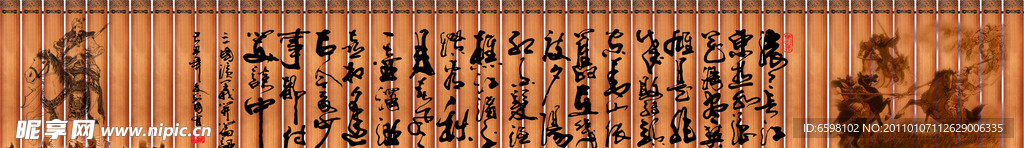 滚滚长江
东逝水浪
花淘尽英
雄是非
成败转头
空青山依
旧在几
度夕阳
红白发渔
樵江渚上
惯看秋
月春风
一壶浊酒
喜相逢
古今多少
事都付
笑谈中
三國演義
昵享网 www.nipic.cn
ID:6598102 NO:20110107112629006335